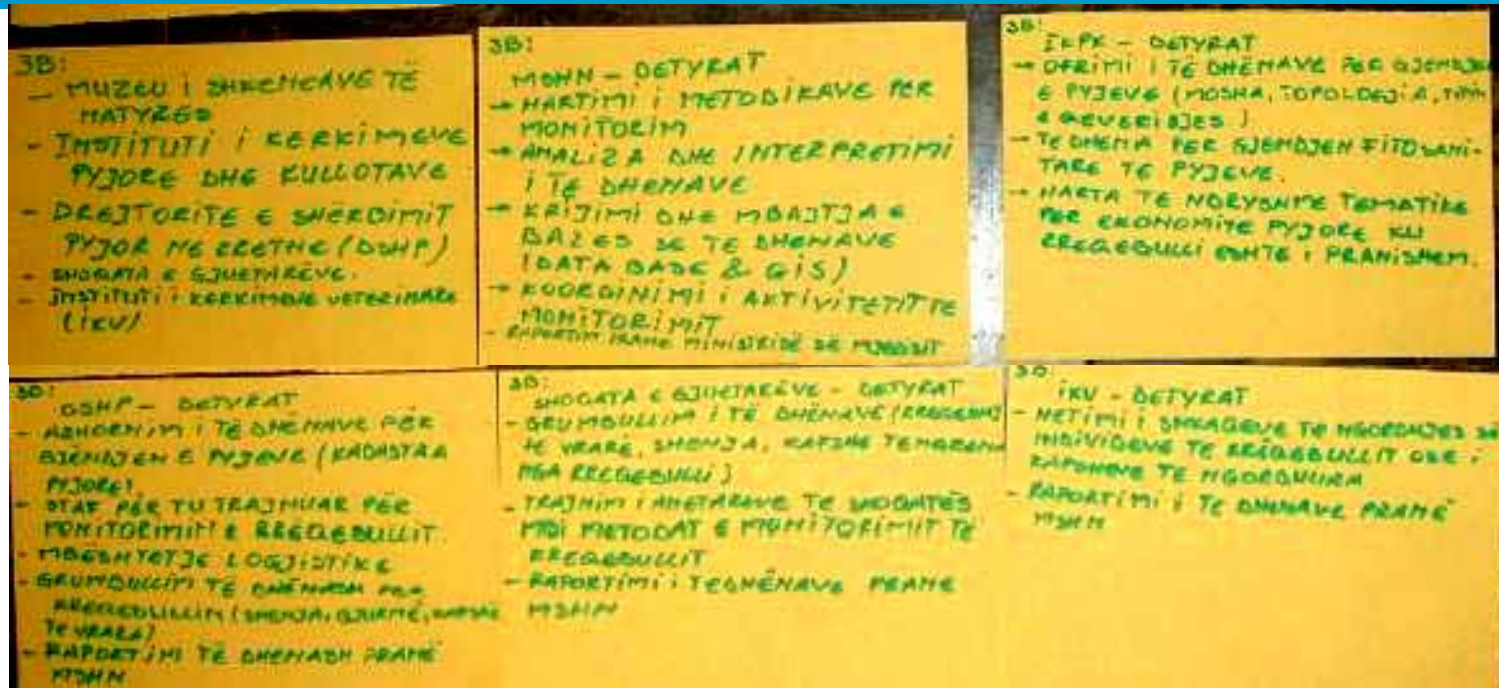 3B:
- MUZEU I SHKENCAVE TË
NATYRES
- INSTITUTI I KERKIMEVE
PYJORE DHE KULLOTAVE
- DREJTORITE E SHËRBIMIT
PYJOR NE RRETHE (DSHP)
- SHOQATA E GJUETARËVE
- INSTITUTI I KERKIMEVE VETERINARE
(IKV)
3B:
MSHN - DETYRAT
→ HARTIMI I METODIKAVE PER
MONITORIM
→ ANALIZA DHE INTERPRETIMI
I TE DHENAVE
→ KRIJIMI DHE MBAJTJA E
BAZES SE TE DHENAVE
(DATA BASE & GIS)
→ KOORDINIMI I AKTIVITETIT TE
MONITORIMIT
- RAPORTIM PRANE MINISTRISË SE MJEDISIT
3B:
IKPK - DETYRAT
→ OFRIMI I TË DHENAVE PER GJENDJEN
E PYJEVE (MOSHA, TOPOLOGJIA, TIPI
E QEVERISJES)
→ TE DHENA PER GJENDJEN FITOSANI-
TARE TE PYJEVE.
→ HARTA TE NDRYSHME TEMATIKE
PER EKONOMITE PYJORE KU
RREQEBULLI ESHTE I PRANISHEM.
3B:
DSHP - DETYRAT
- AZHORNIM I TË DHËNAVE PËR
GJENDJEN E PYJEVE (KADASTRA
PYJORE)
- STAF PËR TU TRAJNUAR PËR
MONITORIMIN E RREQEBULLIT
- MBESHTETJE LOGJISTIKE
- GRUMBULLIM TË DHËNASH PER
RREQEBULLIN (SHENJA, GJURMË, KAFSHE
TE VRARA)
- RAPORTIMI TË DHENASH PRANË
MSHN
3B:
SHOQATA E GJUETARËVE - DETYRAT
- GRUMBULLIM I TË DHËNAVE (RREQEBUJ
TE VRARË, SHENJA, KAFSHE TE NGRENA
NGA RREQEBULLI)
- TRAJNIM I ANETARAVE TE SHOQATËS
MBI METODAT E MONITORIMIT TË
RREQEBULLIT
- RAPORTIMI I TE DHËNAVE PRANE
MSHN
3B:
IKV - DETYRAT
- HETIMI I SHKAQEVE TE NGORDHJES SË
INDIVIDEVE TE RREQEBULLIT OSE I
KAFSHEVE TE NGORDHURA
- RAPORTIMI I TE DHENAVE PRANË
MSHN